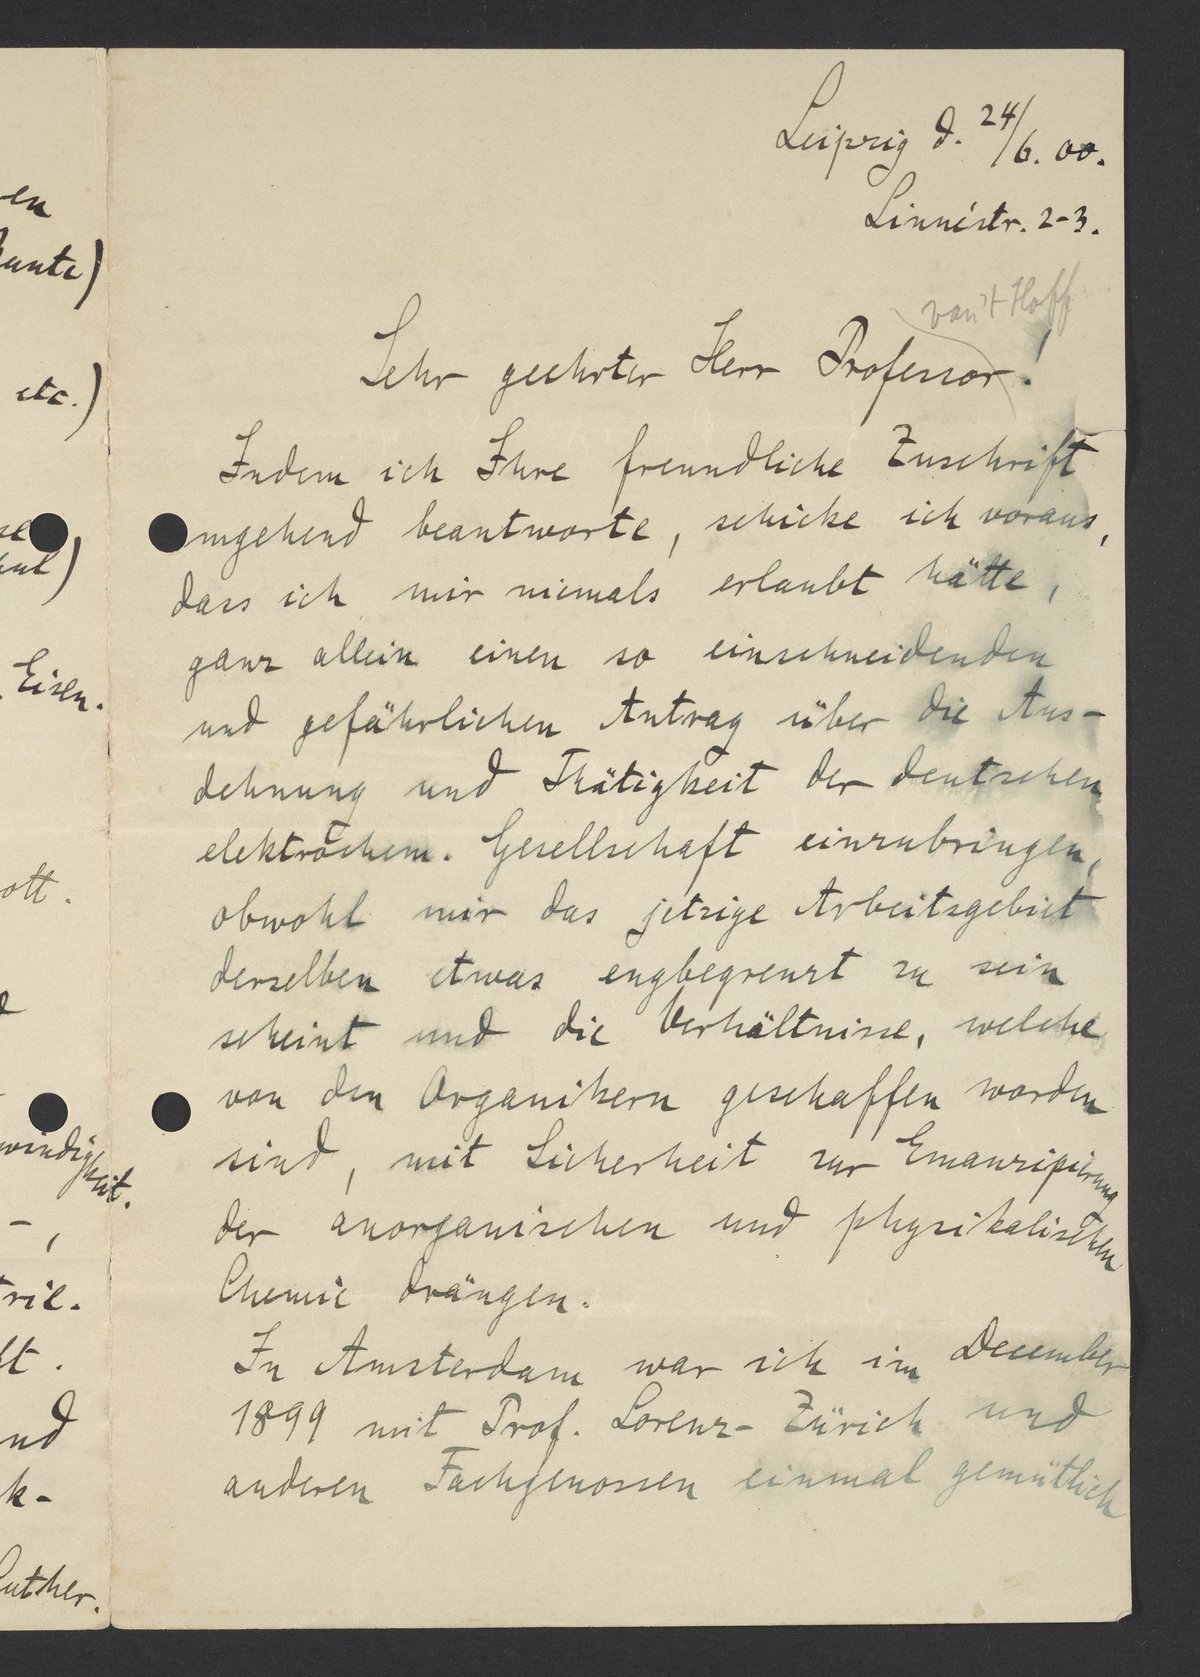 en
etc.)
Eisen.
ott.
windigkeit.
nd
k-
Luther.
Leipzig d. 24/6. 00.
Linnéstr. 2-3.
van't Hoff
Sehr geehrter Herr Professor!
Indem ich Ihre freundliche Zuschrift
mgehend beantworte, schicke ich voraus,
dass ich mir niemals erlaubt hätte,
ganz allein einen so einschneidenden
und gefährlichen Antrag über die Aus-
dehnung und Thätigkeit der deutschen
elektrochem. Gesellschaft einzubringen,
obwohl mir das jetzige Arbeitsgebiet
derselben etwas engbegrenzt zu sein
scheint und die Verhältnisse, welche
von den Organikern geschaffen worden
sind, mit Sicherheit zur Emanzipirung
der anorganischen und physikalischen
Chemie drängen.
In Amsterdam war ich im December
1899 mit Prof. Lorenz-Zürich und
anderen Fachgenossen einmal gemütlich